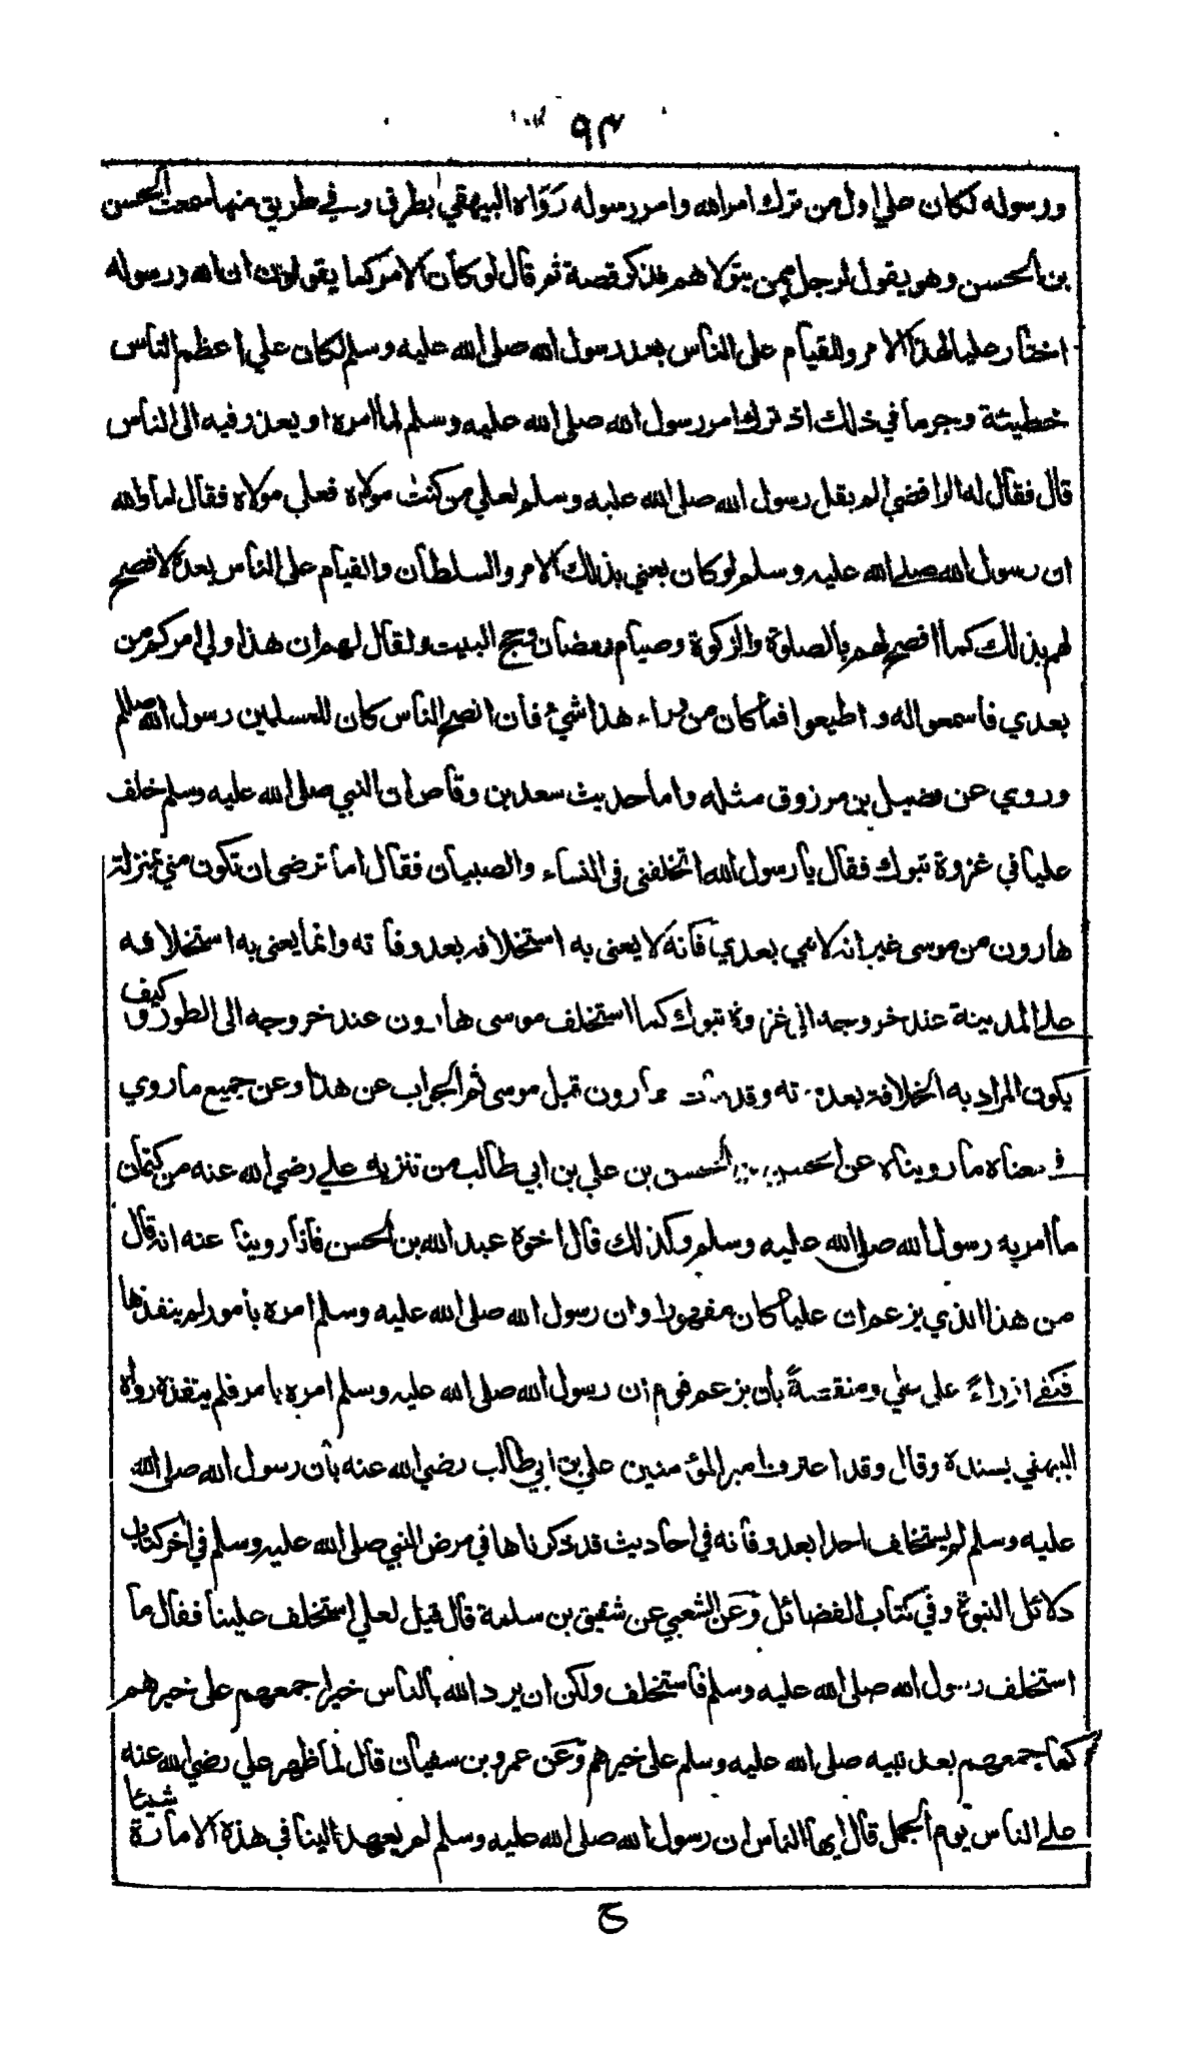 ٩٣
ورسوله لكان علي اول من ترك امر الله وامر رسوله رَوَاه البيهقي بطرق وفي طريق منها سمعت الحسن
بن الحسن وهو يقول لرجل ممن يتولاهم فذكر قصة ثم قال لو كان الامر كما يقولون ان الله ورسوله
اختار عليا لهذا الامر والقيام على الناس بعد رسول الله صلى الله عليه وسلم لكان علي اعظم الناس
خطيئة وجرما في ذلك اذ ترك امر رسول الله صلى الله عليه وسلم لما امره او يعذر فيه الى الناس
قال فقال له الرافضي الم يقل رسول الله صلى الله عليه وسلم لعلي من كنت مولاه فعلي مولاه فقال اما والله
ان رسول الله صلى الله عليه وسلم لو كان يعني بذلك الامر والسلطان والقيام على الناس بعده لافصح
لهم بذلك كما افصح لهم بالصلوة والزكوة وصيام رمضان وحج البيت ولقال لهم ان هذا ولي امركم من
بعدي فاسمعوا له واطيعوا فما كان من وراء هذا شيء فان انصح الناس كان للمسلمين رسول الله صللم
وروي عن فضيل بن مرزوق مثله واما حديث سعد بن وقاص ان النبي صلى الله عليه وسلم خلف
عليا في غزوة تبوك فقال يا رسول الله اتخلفنى فى النساء والصبيان فقال اما ترضى ان تكون مني بمنزلة
هارون من موسى غير انه لا نبي بعدي فانه لا يعنى به استخلافه بعد وفاته وانما يعنى به استخلافه
على المدينة عند خروجه الى غزوة تبوك كما استخلف موسى هارون عند خروجه الى الطور وكيف
يكون المراد به الخلافة بعد ته وقد هارون قبل موسى ثم الجواب عن هذا وعن جميع ما روي
في معناه ما رويناه عن الحسن بن الحسن بن علي بن ابي طالب من تنزيه علي رضي الله عنه من كتمان
ما امر به رسول الله صلى الله عليه وسلم وكذلك قال اخوه عبد الله بن الحسن فاذا روينا عنه انه قال
من هذا الذي يزعم ان عليا كان مقهورا وان رسول الله صلى الله عليه وسلم امره بامور لم ينفذها
فكفى ازراءً على علي ومنقصةً بان يزعم قوم ان رسول الله صلى الله عليه وسلم امره بامر فلم ينفذه رواه
البيهقي بسنده وقال وقد اعترف امير المؤمنين علي بن ابي طالب رضي الله عنه بان رسول الله صلى الله
عليه وسلم لم يستخلف احدا بعد وفاته في احاديث قد ذكرناها في مرض النبي صلى الله عليه وسلم في آخر كتاب
دلائل النبوة وفي كتاب الفضائل وَعَن الشعبي عن شقيق بن سلمة قال قيل لعلي استخلف علينا فقال ما
استخلف رسول الله صلى الله عليه وسلم فاستخلف ولكن ان يرد الله بالناس خيرا جمعهم على خيرهم
كما جمعهم بعد نبيه صلى الله عليه وسلم على خيرهم وَعَن عمرو بن سفيان قال لما ظهر علي رضي الله عنه
على الناس يوم الجمل قال ايها الناس ان رسول الله صلى الله عليه وسلم لم يعهد الينا في هذه الامارة شيئا
ح